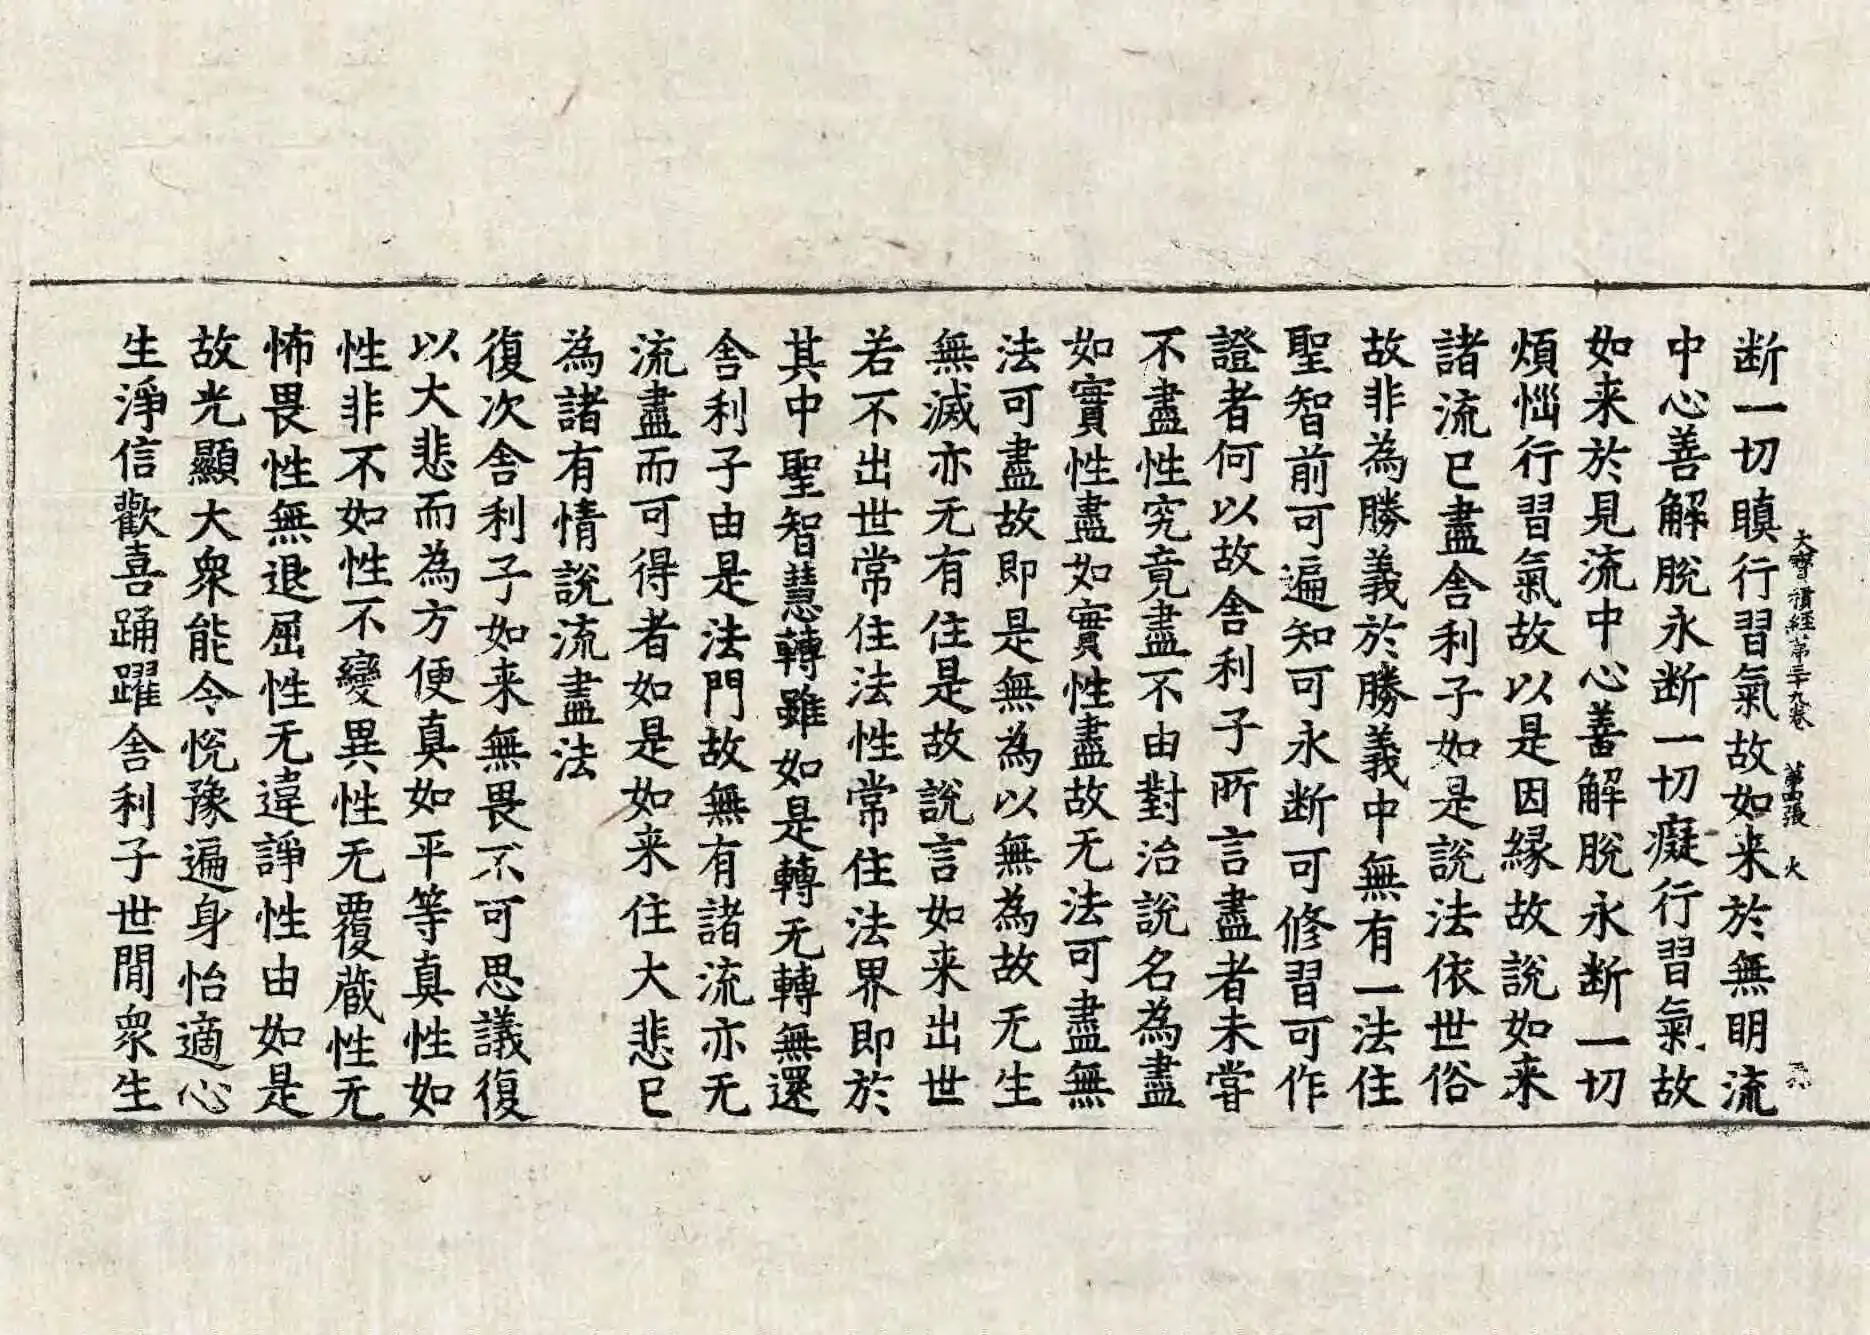 大寶積經第三十九卷 第四張 火
断一切瞋行習氣故如来於無明流
中心善解脫永断一切癡行習氣故
如来於見流中心善解脫永断一切
煩惱行習氣故以是因縁故說如来
諸流已盡舍利子如是說法依世俗
故非為勝義於勝義中無有一法住
聖智前可遍知可永断可修習可作
證者何以故舍利子所言盡者未甞
不盡性究竟盡不由對治說名為盡
如實性盡如實性盡故无法可盡無
法可盡故即是無為以無為故无生
無滅亦无有住是故說言如来出世
若不出世常住法性常住法界即於
其中聖智慧轉雖如是轉无轉無還
舍利子由是法門故無有諸流亦无
流盡而可得者如是如来住大悲已
為諸有情說流盡法
復次舍利子如来無畏不可思議復
以大悲而為方便真如平等真性如
性非不如性不變異性无覆蔵性无
怖畏性無退屈性无違諍性由如是
故光顯大眾能令悅豫遍身怡適心
生淨信歡喜踊躍舍利子世閒眾生